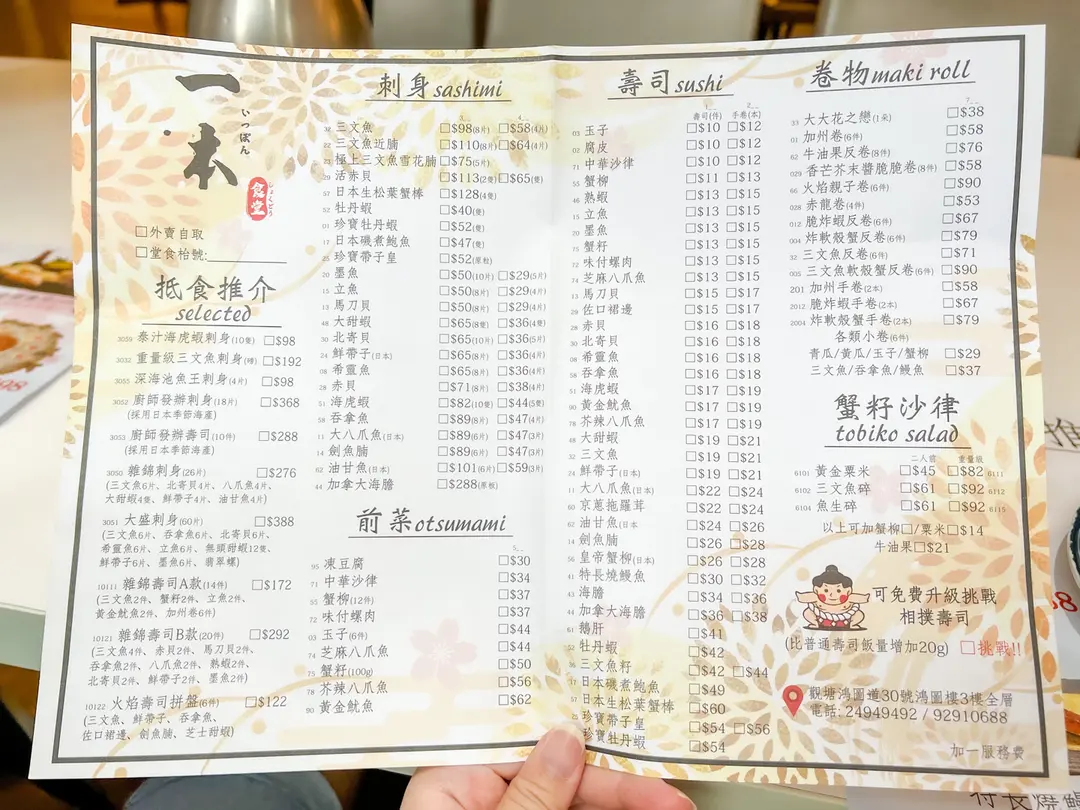 一本
いっぽん
食堂
□外賣自取
□堂食枱號:
抵食推介
selected
3059 泰汁海虎蝦刺身(10隻) □$98
3032 重量級三文魚刺身(磅) □$192
3055 深海池魚王刺身(4片) □$98
3052 廚師發辦刺身(18片) □$368
(採用日本季節海產)
3053 廚師發辦壽司(10件) □$288
(採用日本季節海產)
3050 雜錦刺身(26片) □$276
(三文魚6片、北寄貝4片、八爪魚4片、
大甜蝦4隻、鮮帶子4片、油甘魚4片)
3051 大盛刺身(60片) □$388
(三文魚6片、吞拿魚6片、北寄貝6片、
希靈魚6片、立魚6片、無頭甜蝦12隻、
鮮帶子6片、墨魚6片、翡翠螺)
10111 雜錦壽司A款(14件) □$172
(三文魚2件、蟹籽2件、立魚2件、
黃金魷魚2件、加州卷6件)
10121 雜錦壽司B款(20件) □$292
(三文魚4件、赤貝2件、馬刀貝2件、
吞拿魚2件、八爪魚2件、熟蝦2件、
北寄貝2件、鮮帶子2件、墨魚2件)
10122 火焰壽司拼盤(6件) □$122
(三文魚、鮮帶子、吞拿魚、
佐口裙邊、劍魚腩、芝士甜蝦)
刺身sashimi
3._ 4._
32 三文魚 □$98(8片) □$58(4片)
22 三文魚近腩 □$110(8片) □$64(4片)
23 極上三文魚雪花腩 □$75(5片)
29 活赤貝 □$113(2隻) □$65(隻)
57 日本生松葉蟹棒 □$128(4隻)
52 牡丹蝦 □$40(隻)
01 珍寶牡丹蝦 □$52(隻)
17 日本磯煮鮑魚 □$47(隻)
25 珍寶帶子皇 □$52(原粒)
20 墨魚 □$50(10片) □$29(5片)
15 立魚 □$50(8片) □$29(4片)
13 馬刀貝 □$50(8片) □$29(4片)
48 大甜蝦 □$65(8隻) □$36(4隻)
30 北寄貝 □$65(10片) □$36(5片)
24 鮮帶子(日本) □$65(8片) □$36(4片)
08 希靈魚 □$65(8片) □$36(4片)
28 赤貝 □$71(8片) □$38(4片)
51 海虎蝦 □$82(10隻) □$44(5隻)
58 吞拿魚 □$89(8片) □$47(4片)
11 大八爪魚(日本) □$89(6片) □$47(3片)
14 劍魚腩 □$89(6片) □$47(3片)
62 油甘魚(日本) □$101(6片) □$59(3片)
44 加拿大海膽 □$288(原板)
前菜otsumami
5._
95 凍豆腐 □$30
71 中華沙律 □$34
55 蟹柳(12件) □$37
72 味付螺肉 □$37
03 玉子(6件) □$44
74 芝麻八爪魚 □$44
75 蟹籽(100g) □$50
78 芥辣八爪魚 □$56
90 黃金魷魚 □$62
壽司sushi
1._ 2._
壽司(件) 手卷(本)
03 玉子 □$10 □$12
02 腐皮 □$10 □$12
71 中華沙律 □$10 □$12
55 蟹柳 □$11 □$13
46 熟蝦 □$13 □$15
15 立魚 □$13 □$15
20 墨魚 □$13 □$15
75 蟹籽 □$13 □$15
72 味付螺肉 □$13 □$15
74 芝麻八爪魚 □$13 □$15
13 馬刀貝 □$15 □$17
29 佐口裙邊 □$15 □$17
28 赤貝 □$16 □$18
30 北寄貝 □$16 □$18
08 希靈魚 □$16 □$18
58 吞拿魚 □$16 □$18
51 海虎蝦 □$17 □$19
90 黃金魷魚 □$17 □$19
78 芥辣八爪魚 □$17 □$19
48 大甜蝦 □$19 □$21
32 三文魚 □$19 □$21
24 鮮帶子(日本) □$19 □$21
11 大八爪魚(日本) □$22 □$24
60 京蔥拖羅茸 □$22 □$24
62 油甘魚(日本 □$24 □$26
14 劍魚腩 □$26 □$28
56 皇帝蟹柳(日本) □$26 □$28
41 特長燒鰻魚 □$30 □$32
43 海膽 □$34 □$36
44 加拿大海膽 □$36 □$38
61 鵝肝 □$41
52 牡丹蝦 □$42
36 三文魚籽 □$42 □$44
17 日本磯煮鮑魚 □$49
57 日本生松葉蟹棒 □$60
25 珍寶帶子皇 □$54 □$56
珍寶牡丹蝦 □$54
卷物maki roll
7._
33 大大花之戀(1朵) □$38
01 加州卷(6件) □$58
62 牛油果反卷(8件) □$76
029 香芒芥末醬脆脆卷(8件) □$58
66 火焰親子卷(6件) □$90
028 赤龍卷(4件) □$53
012 脆炸蝦反卷(6件) □$67
004 炸軟殼蟹反卷(6件) □$79
32 三文魚反卷(6件) □$71
005 三文魚軟殼蟹反卷(6件) □$90
201 加州手卷(2本) □$58
2012 脆炸蝦手卷(2本) □$67
2004 炸軟殼蟹手卷(2本) □$79
各類小卷(6件)
青瓜/黃瓜/玉子/蟹柳 □$29
三文魚/吞拿魚/鰻魚 □$37
蟹籽沙律
tobiko salad
二人前 重量級
6101 黃金粟米 □$45 □$82 6111
6102 三文魚碎 □$61 □$92 6112
6104 魚生碎 □$61 □$92 6115
以上可加蟹柳□/粟米□$14
牛油果□$21
可免費升級挑戰
相撲壽司
(比普通壽司飯量增加20g) □挑戰!!
觀塘鴻圖道30號鴻圖樓3樓全層
電話: 24949492 / 92910688
加一服務費